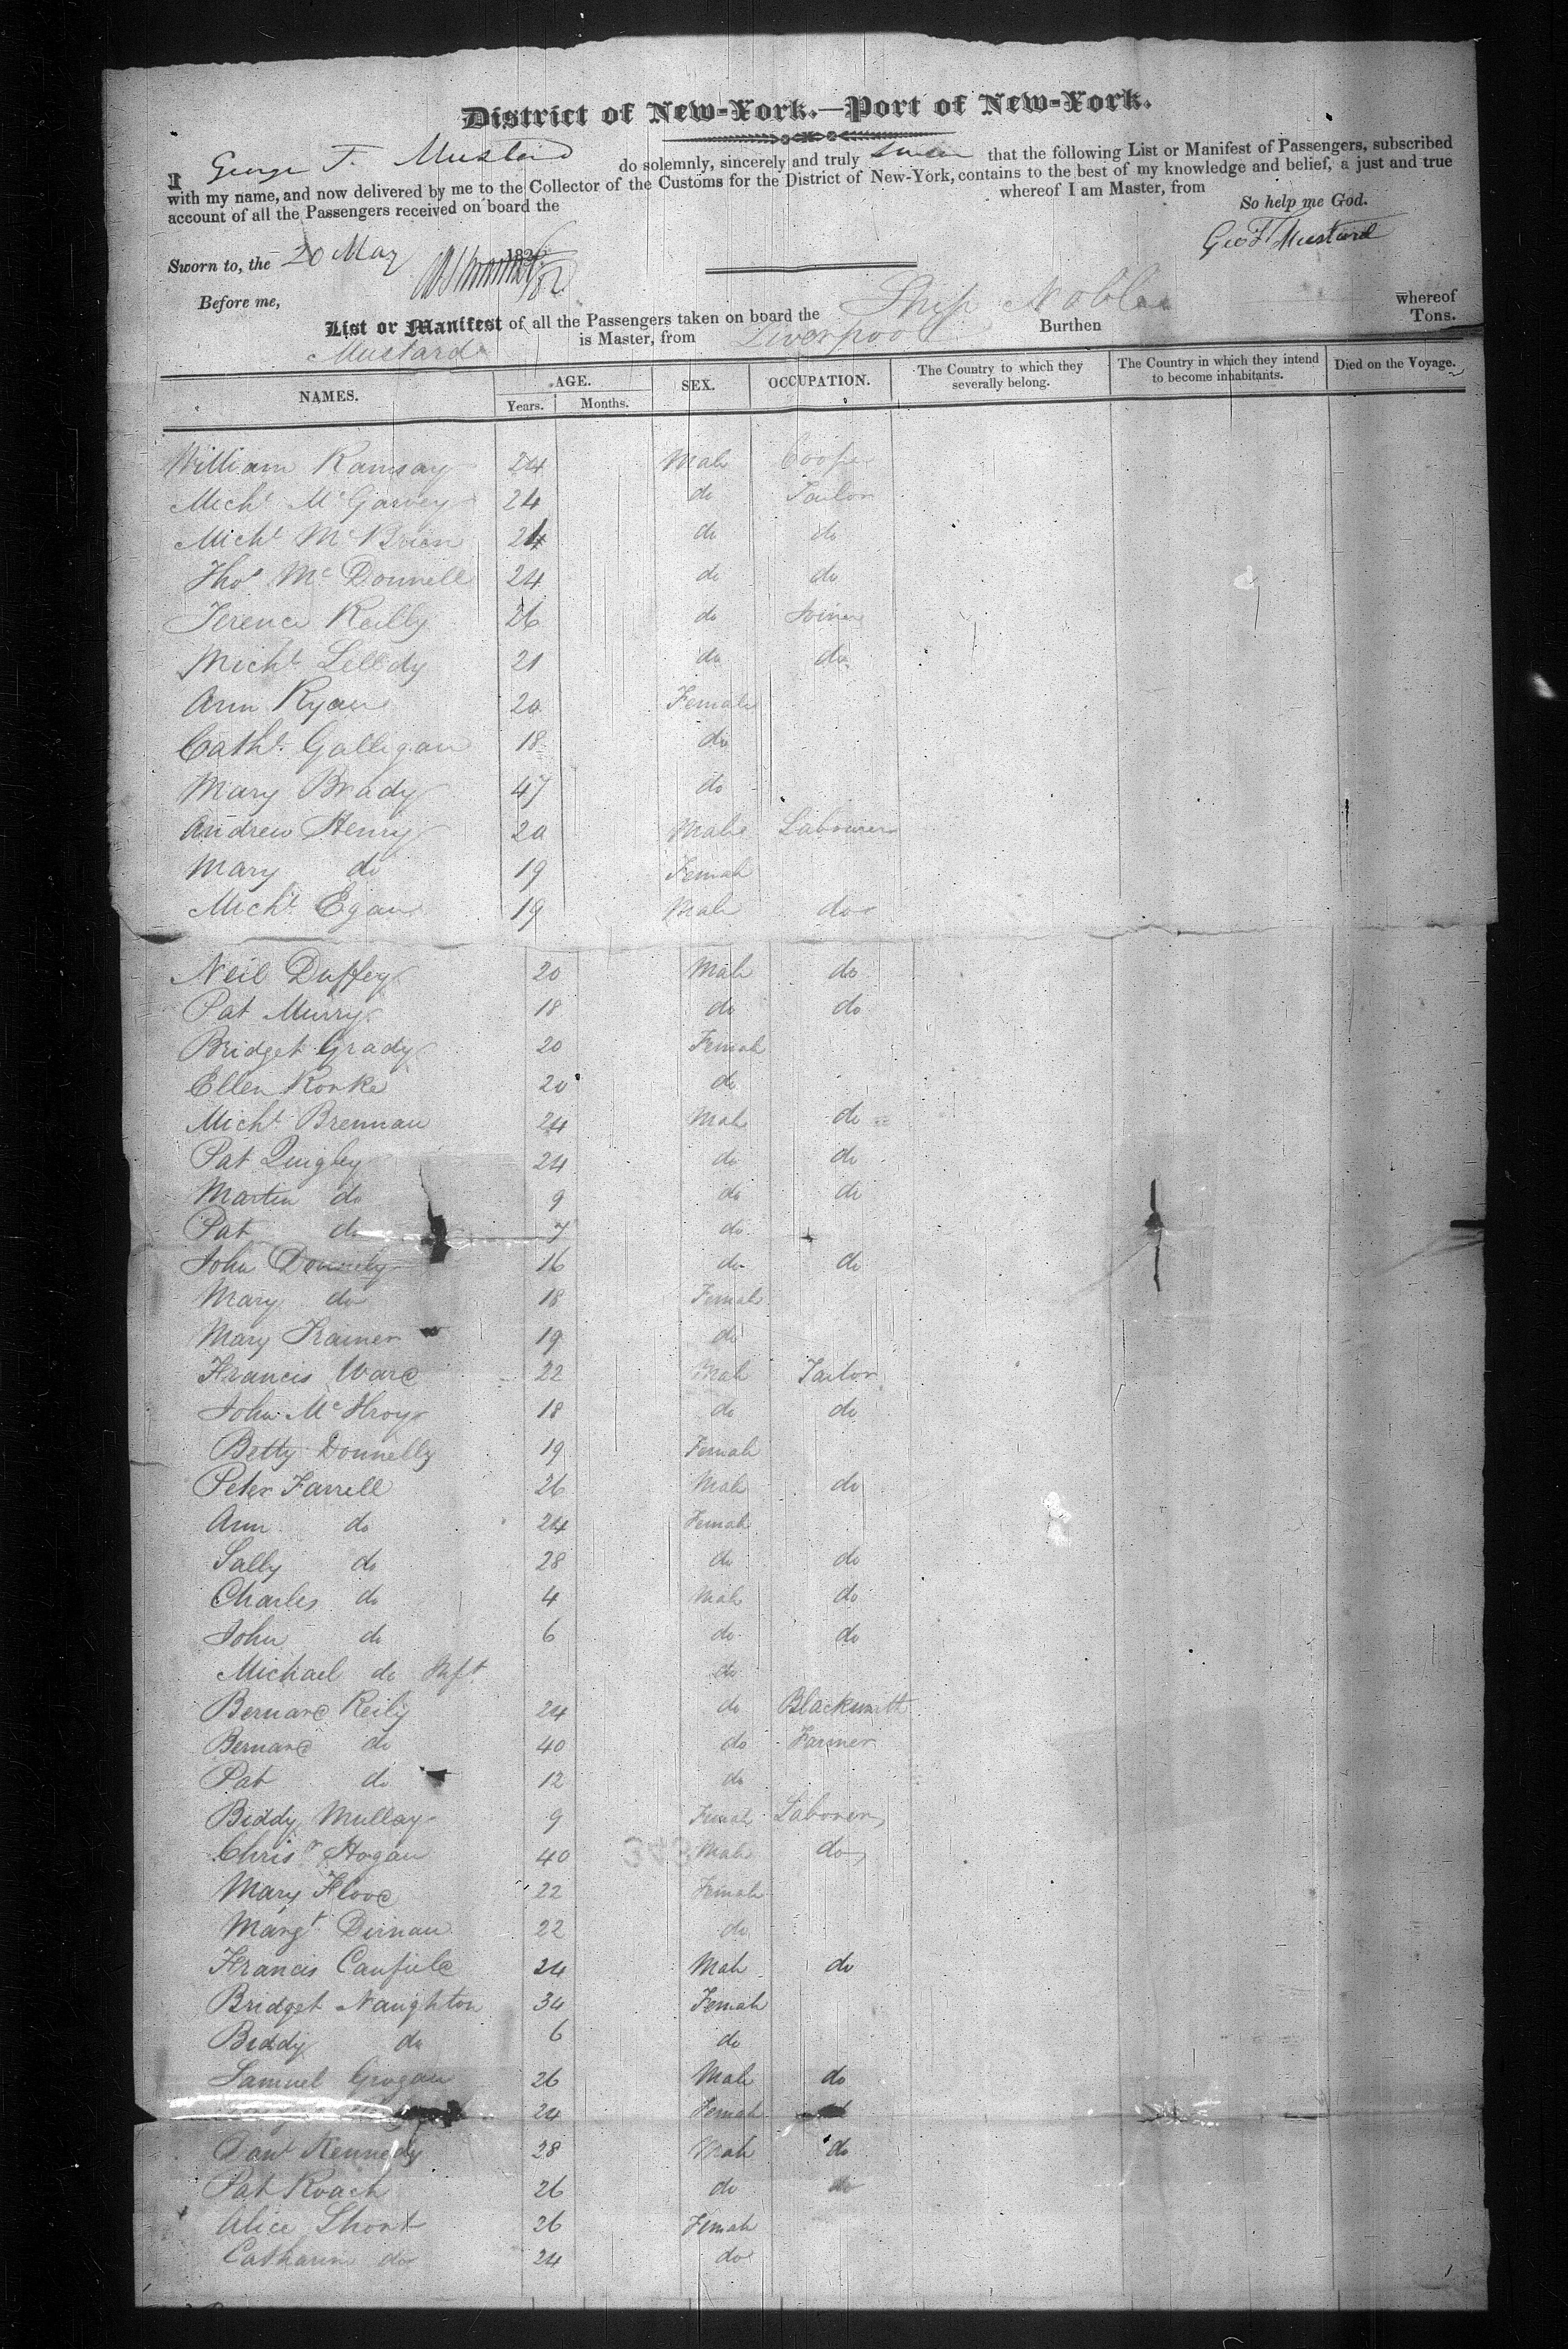 District of New-York.—Port of New-York.
I George T. Mustard do solemnly, sincerely and truly swear that the following List or Manifest of Passengers, subscribed
with my name, and now delivered by me to the Collector of the Customs for the District of New-York, contains to the best of my knowledge and belief, a just and true
account of all the Passengers received on board the whereof I am Master, from
So help me God.
Sworn to, the 20 May 1836
Geo T Mustard
Before me,
List or Manifest of all the Passengers taken on board the Ship Noble whereof
Mustard is Master, from Liverpool Burthen Tons.
NAMES. AGE. Years. Months. SEX. OCCUPATION. The Country to which they severally belong. The Country in which they intend to become inhabitants. Died on the Voyage.
William Ramsay 24 Male Cooper
Michl McGarvey 24 do Tailor
Michl McBrien 24 do do
Thos McDonnell 24 do do
Terence Reilly 26 do Joiner
Michl Leddy 21 do do
Ann Ryan 20 Female
Cathe Galligan 18 do
Mary Brady 47 do
Andrew Henry 20 Male Labourer
Mary do 19 Female
Michl Egan 19 Male do
Neil Duffey 20 Male do
Pat Murry 18 do do
Bridget Grady 20 Female
Ellen Rorke 20 do
Michl Brennan 24 Male do
Pat Quigley 24 do do
Martin do 9 do do
Pat do 7 do
John Donnely 16 do do
Mary do 18 Female
Mary Trainer 19 do
Francis Ward 22 Male Tailor
John McIlroy 18 do do
Betty Donnelly 19 Female
Peter Farrell 26 Male do
Ann do 24 Female
Sally do 28 do do
Charles do 4 Male do
John do 6 do do
Michael do Inft do
Bernard Reily 24 do Blacksmith
Bernard do 40 do Farmer
Pat do 12 do
Biddy Mullay 9 Female Laborer
Chrisr Hogan 40 Male do
Mary Flood 22 Female
Margt Dirnan 22 do
Francis Canfield 24 Male do
Bridget Naughton 34 Female
Biddy do 6 do
Samuel Grogan 26 Male do
24 Female
Danl Kennedy 28 Male do
Pat Roach 26 do do
Alice Short 26 Female
Catharine do 24 do